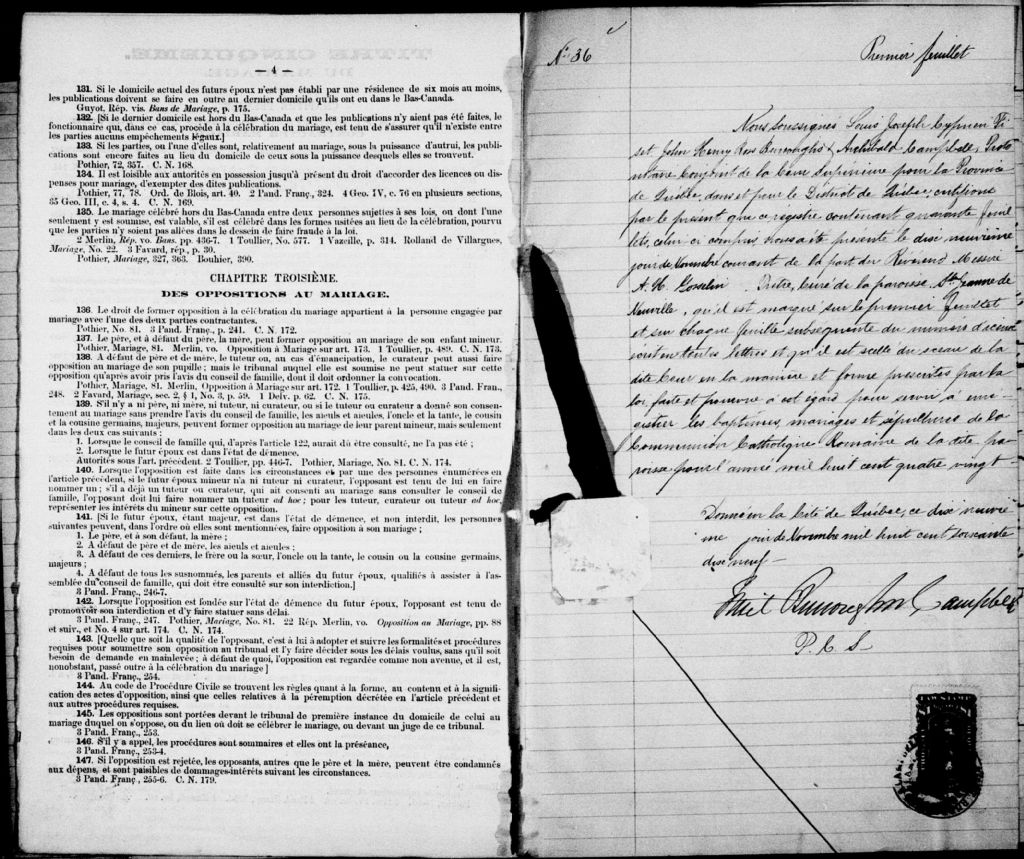 — 4 —
131. Si le domicile actuel des futurs époux n'est pas établi par une résidence de six mois au moins,
les publications doivent se faire en outre au dernier domicile qu'ils ont eu dans le Bas-Canada.
Guyot. Rép. vis. Bans de Mariage, p. 175.
132. [Si le dernier domicile est hors du Bas-Canada et que les publications n'y aient pas été faites, le
fonctionnaire qui, dans ce cas, procède à la célébration du mariage, est tenu de s'assurer qu'il n'existe entre
les parties aucuns empêchements légaux.]
133. Si les parties, ou l'une d'elles sont, relativement au mariage, sous la puissance d'autrui, les publi-
cations sont encore faites au lieu du domicile de ceux sous la puissance desquels elles se trouvent.
Pothier, 72, 357. C. N. 168.
134. Il est loisible aux autorités en possession jusqu'à présent du droit d'accorder les licences ou dis-
penses pour mariage, d'exempter des dites publications.
Pothier, 77, 78. Ord. de Blois, art. 40. 2 Pand. Franç., 324. 4 Geo. IV, c. 76 en plusieurs sections,
35 Geo. III, c. 4, s. 4. C. N. 169.
135. Le mariage célébré hors du Bas-Canada entre deux personnes sujettes à ses lois, ou dont l'une
seulement y est soumise, est valable, s'il est célébré dans les formes usitées au lieu de la célébration, pourvu
que les parties n'y soient pas allées dans le dessein de faire fraude à la loi.
2 Merlin, Rép. vo. Bans. pp. 436-7. 1 Toullier, No. 577. 1 Vazeille, p. 314. Rolland de Villargues,
Mariage, No. 22. 3 Favard, rép., p. 30.
Pothier, Mariage, 327, 363. Bouhier, 390.
CHAPITRE TROISIÈME.
DES OPPOSITIONS AU MARIAGE.
136. Le droit de former opposition à la célébration du mariage appartient à la personne engagée par
mariage avec l'une des deux parties contractantes.
Pothier, No. 81. 3 Pand. Franç., p. 241. C. N. 172.
137. Le père, et à défaut du père, la mère, peut former opposition au mariage de son enfant mineur.
Pothier, Mariage, 81. Merlin, vo. Opposition à Mariage sur art. 173. 1 Toullier, p. 489. C. N. 173.
138. A défaut de père et de mère, le tuteur ou, au cas d'émancipation, le curateur peut aussi faire
opposition au mariage de son pupille; mais le tribunal auquel elle est soumise ne peut statuer sur cette
opposition qu'après avoir pris l'avis du conseil de famille, dont il doit ordonner la convocation.
Pothier, Mariage, 81. Merlin, Opposition à Mariage sur art. 172. 1 Toullier, p. 425, 490. 3 Pand. Fran.,
248. 2 Favard, Mariage, sec. 2, § 1, No. 3, p. 59. 1 Delv. p. 62. C. N. 175.
139. S'il n'y a ni père, ni mère, ni tuteur, ni curateur, ou si le tuteur ou curateur a donné son consen-
tement au mariage sans prendre l'avis du conseil de famille, les aïeuls et aïeules, l'oncle et la tante, le cousin
et la cousine germains, majeurs, peuvent former opposition au mariage de leur parent mineur, mais seulement
dans les deux cas suivants:
1. Lorsque le conseil de famille qui, d'après l'article 122, aurait dû être consulté, ne l'a pas été;
2. Lorsque le futur époux est dans l'état de démence.
Autorités sous l'art. précédent. 2 Toullier, pp. 446-7. Pothier, Mariage, No. 81. C. N. 174.
140. Lorsque l'opposition est faite dans les circonstances et par une des personnes énumérées en
l'article précédent, si le futur époux mineur n'a ni tuteur ni curateur, l'opposant est tenu de lui en faire
nommer un; s'il a déjà un tuteur ou curateur, qui ait consenti au mariage sans consulter le conseil de
famille, l'opposant doit lui faire nommer un tuteur ad hoc; pour les tuteur, curateur ou tuteur ad hoc,
représenter les intérêts du mineur sur cette opposition.
141. [Si le futur époux, étant majeur, est dans l'état de démence, et non interdit, les personnes
suivantes peuvent, dans l'ordre où elles sont mentionnées, faire opposition à son mariage;
1. Le père, et à son défaut, la mère;
2. A défaut de père et de mère, les aïeuls et aïeules;
3. A défaut de ces derniers, le frère ou la sœur, l'oncle ou la tante, le cousin ou la cousine germains,
majeurs;
4. A défaut de tous les susnommés, les parents et alliés du futur époux, qualifiés à assister à l'as-
semblée du conseil de famille, qui doit être consulté sur son interdiction.]
3 Pand. Franç., 246-7.
142. Lorsque l'opposition est fondée sur l'état de démence du futur époux, l'opposant est tenu de
promouvoir son interdiction et d'y faire statuer sans délai.
3 Pand. Franç., 247. Pothier, Mariage, No. 81. 22 Rép. Merlin, vo. Opposition au Mariage, pp. 88
et suiv., et No. 4 sur art. 174. C. N. 174.
143. [Quelle que soit la qualité de l'opposant, c'est à lui à adopter et suivre les formalités et procédures
requises pour soumettre son opposition au tribunal et l'y faire décider sous les délais voulus, sans qu'il soit
besoin de demande en mainlevée; à défaut de quoi, l'opposition est regardée comme non avenue, et il est,
nonobstant, passé outre à la célébration du mariage]
3 Pand. Franç., 254.
144. Au code de Procédure Civile se trouvent les règles quant à la forme, au contenu et à la signifi-
cation des actes d'opposition, ainsi que celles relatives à la péremption décrétée en l'article précédent et
aux autres procédures requises.
145. Les oppositions sont portées devant le tribunal de première instance du domicile de celui au
mariage duquel on s'oppose, ou du lieu où doit se célébrer le mariage, ou devant un juge de ce tribunal.
3 Pand. Franç., 253.
146. S'il y a appel, les procédures sont sommaires et elles ont la préséance,
3 Pand. Franç., 253-4.
147. Si l'opposition est rejetée, les opposants, autres que le père et la mère, peuvent être condamnés
aux dépens, et sont paisibles de dommages-intérêts suivant les circonstances.
3 Pand. Franç., 255-6. C. N. 179.
No. 36
Premier feuillet
Nous soussignés Louis Joseph Cyprien Fi
set John Henry Ross Burroughs & Archibald Campbell, Proto
notaire Conjoint de la Cour Supérieure pour la Province
de Québec, dans et pour le District de Québec, certifions
par le présent que ce registre contenant quarante feuil
lets, celui-ci compris, nous a été présenté le dix neuvième
jour de Novembre courant de la part du Révérend Messire
A. H. Gosselin Prêtre, Curé de la paroisse St. Jeanne de
Neuville, qu'il est marqué sur le premier feuillet
et sur chaque feuille subséquente du numéro d'icelui
soit en toutes lettres et qu'il est scellé du sceau de la
dite Cour en la manière et forme prescrites par la
loi, faite et pourvue à cet égard pour servir à enre
gistrer les baptêmes, mariages et sépultures de la
Communion Catholique Romaine de la dite pa
roisse pour l'année mil huit cent quatre vingt
Donné en la Cité de Québec, ce dix neuviè
me jour de Novembre mil huit cent soixante
dix neuf —
Fiset Burroughs & Campbell
P. C. S.